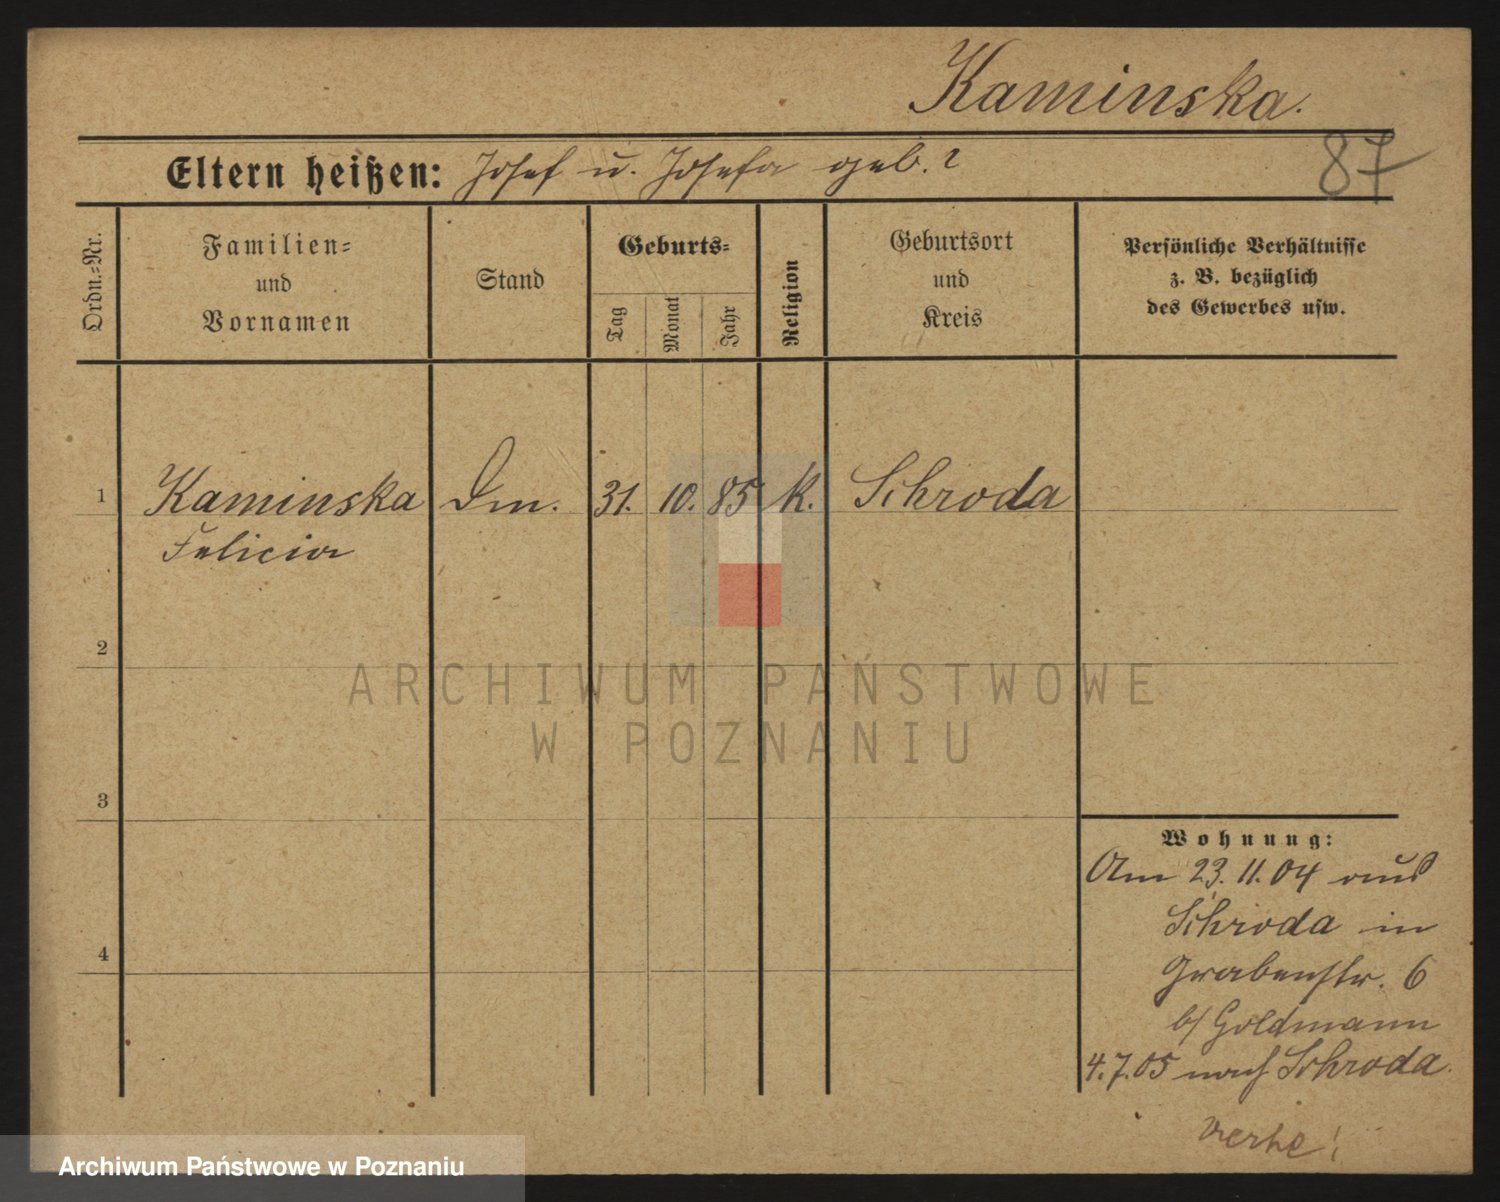 Kaminska.
Eltern heißen: Josef u. Josefa geb. ?
87
Ordn.=Nr.
Familien=
und
Vornamen
Stand
Geburts=
Tag
Monat
Jahr
Religion
Geburtsort
und
Kreis
Persönliche Verhältnisse
z. B. bezüglich
des Gewerbes usw.
1 Kaminska Dm. 31. 10. 85 k. Schroda
Felicia
2
3
4
Wohnung:
Am 23.11.04 aus
Schroda in
Grabenstr. 6
b/ Goldmann
4.7.05 nach Schroda.
ARCHIWUM PAŃSTWOWE
W POZNANIU
Archiwum Państwowe w Poznaniu